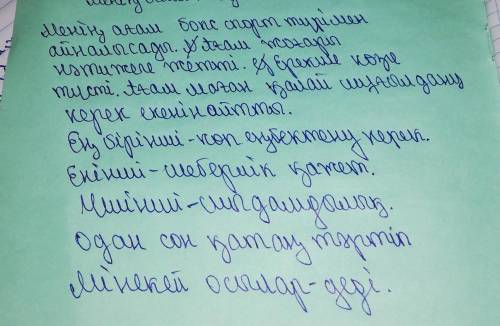 Менің ағам бокс спорт түрімен
айналысады. Ағам жоғары
нәтижеге жетті. Ерекше көзге
түсті. Ағам маған қалай шұғылдану
керек екенін айтты.
Ең бірінші-көп еңбектену керек.
Екінші-шеберлік қажет.
Үшінші-шыдамдылық.
Одан сон қатаң тәртіп
Мінекей осылар-деді.